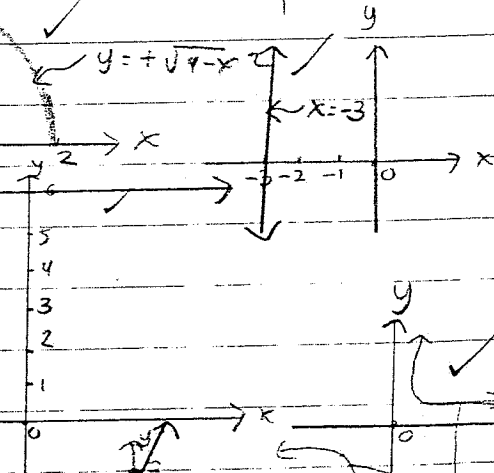 y
y = + √4-x²
x = -3
x
2
-3 -2 -1 0
x
y
6
5
4
3
2
1
0
x
y
0
y